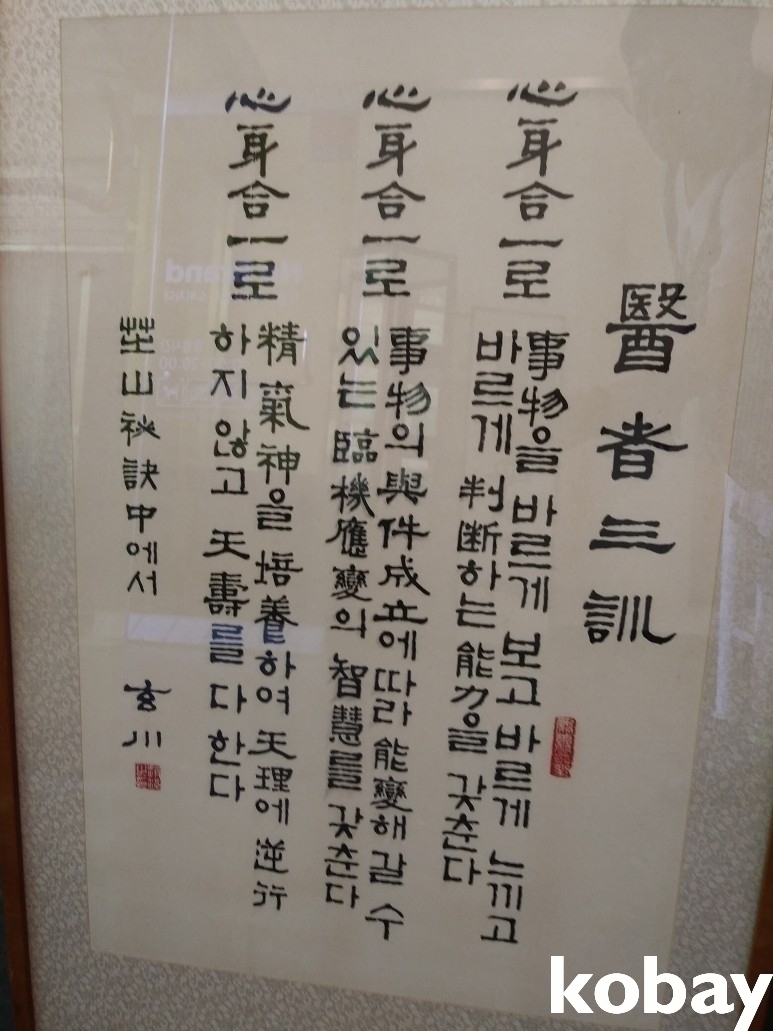 醫者三訓
心身合一로
事物을 바르게 보고 바르게 느끼고
바르게 判断하는 能力을 갖춘다
心身合一로
事物의 與件成立에 따라 能變해 갈 수
있는 臨機應變의 智慧를 갖춘다
心身合一로
精氣神을 培養하여 天理에 逆行
하지 않고 天壽를 다한다
芷山秘訣中에서
玄川
kobay